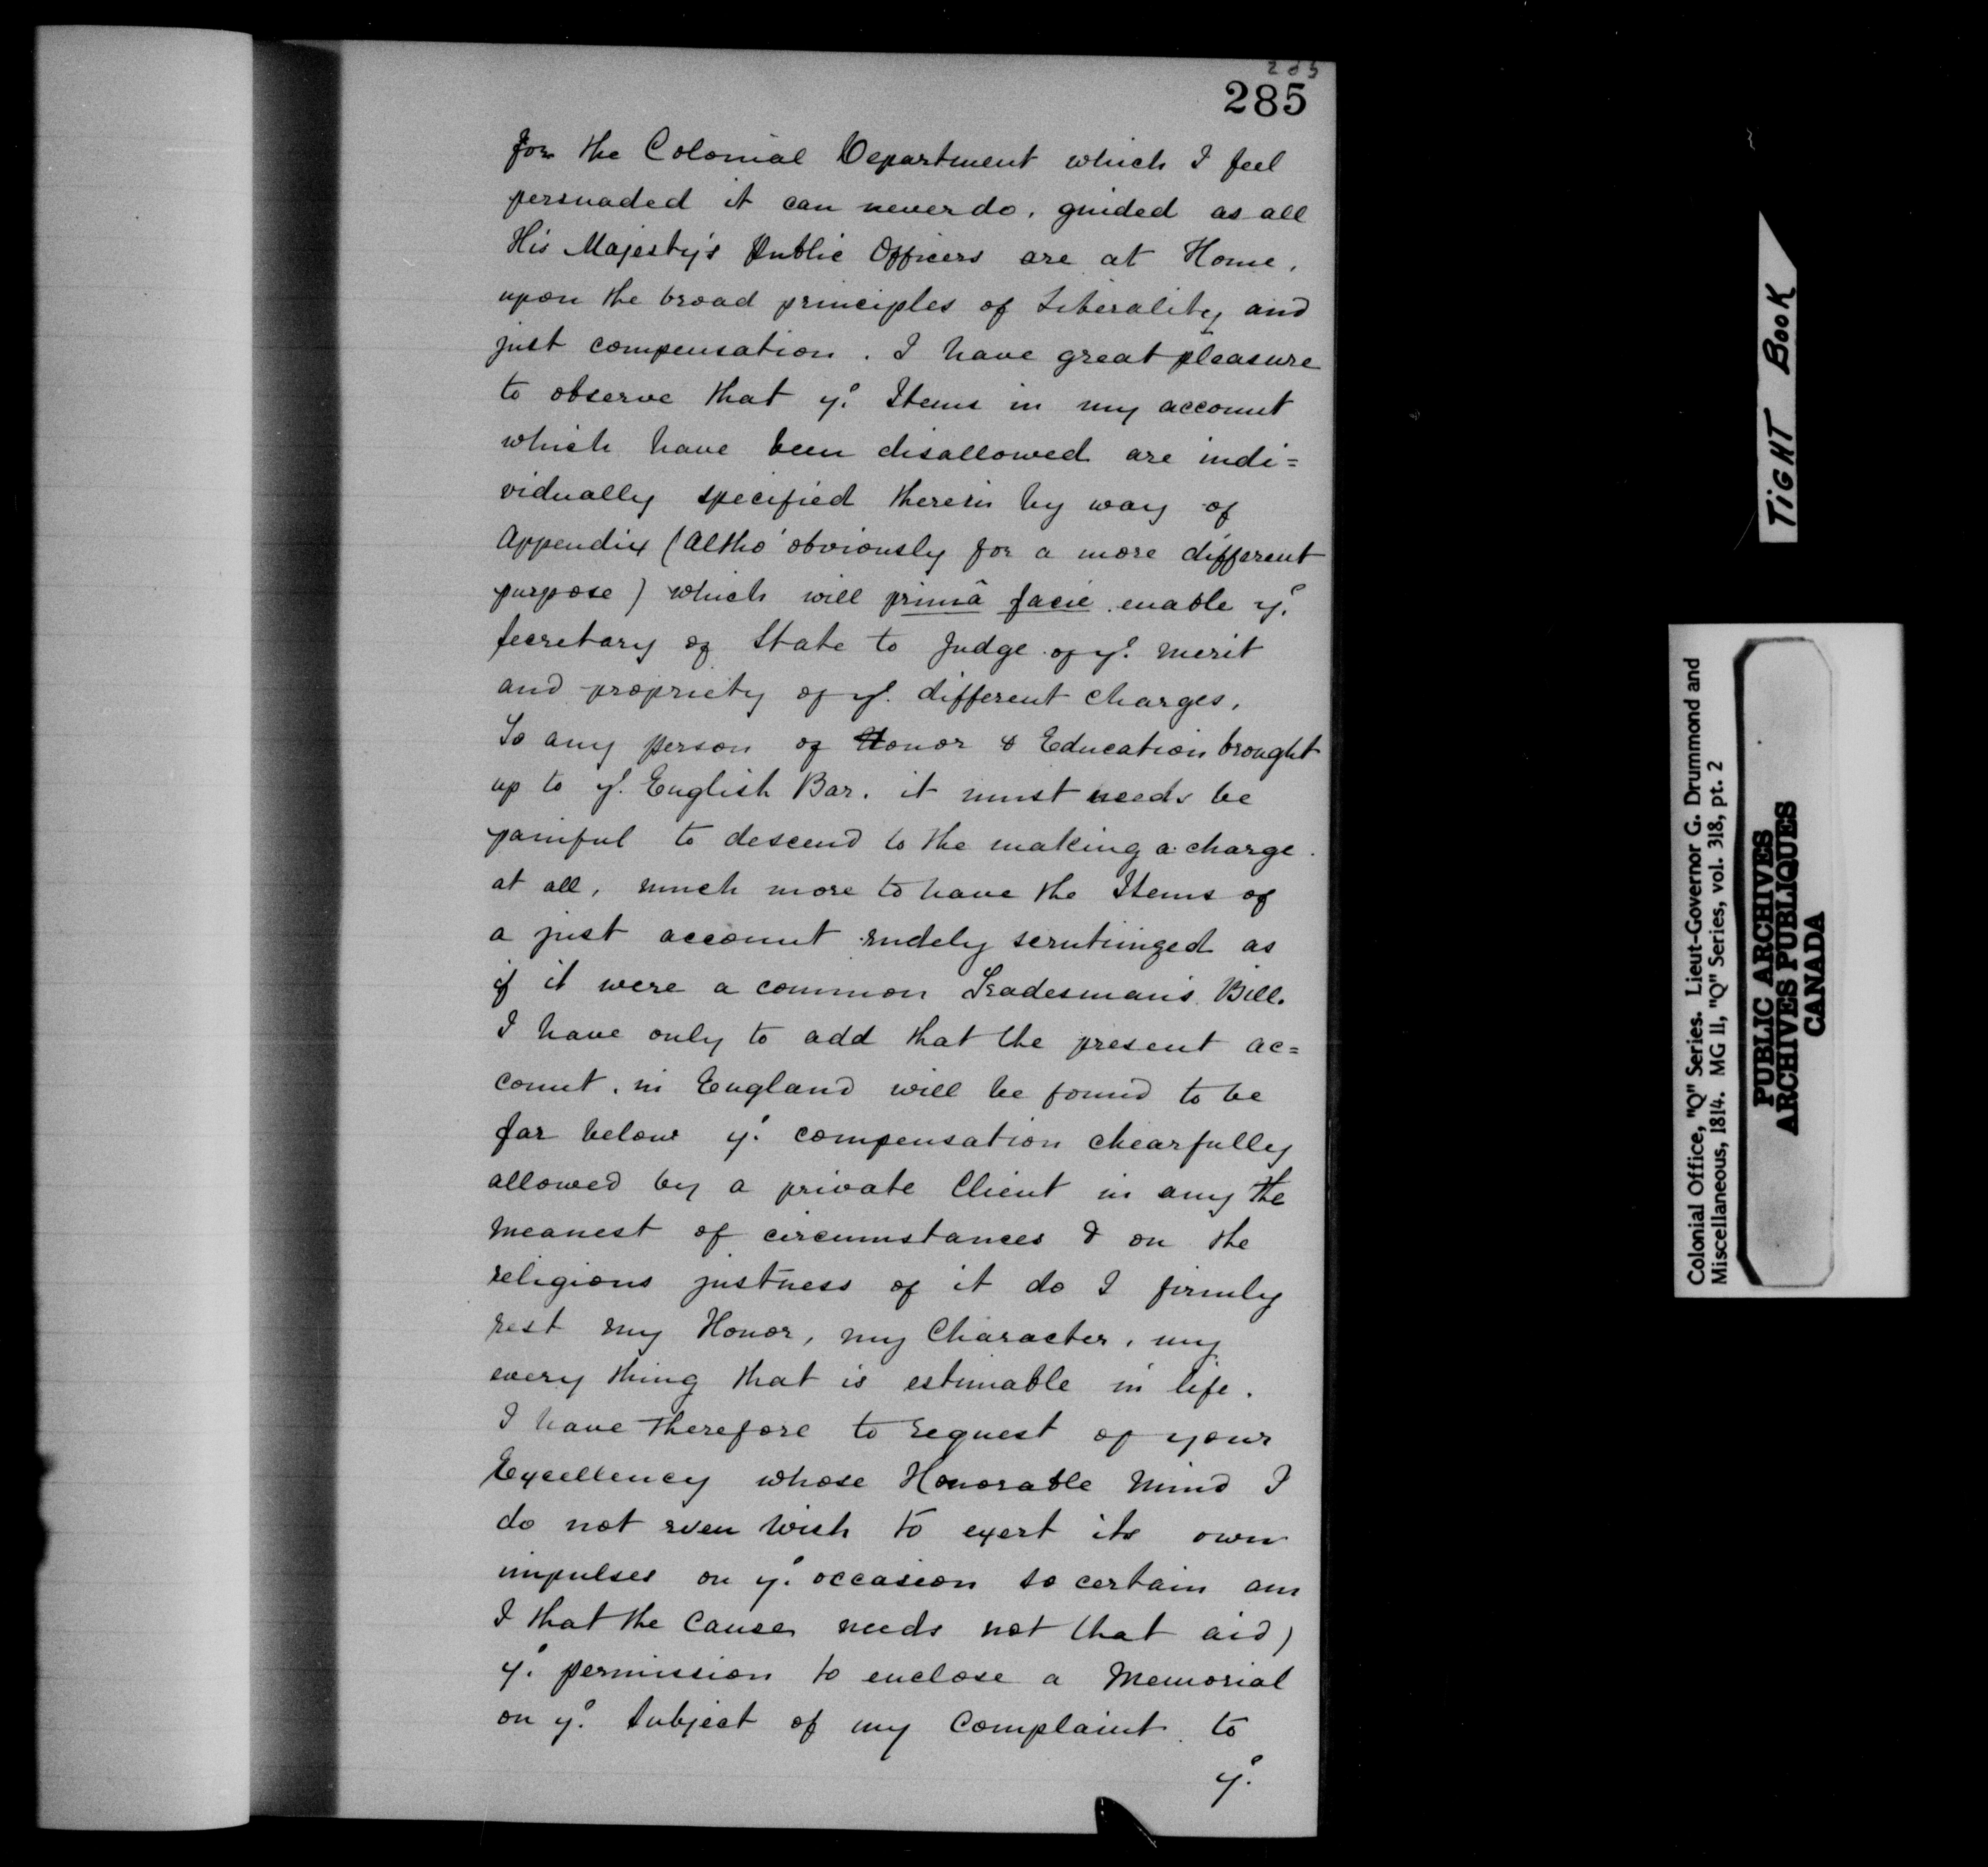 285
285
for the Colonial Department which I feel
persuaded it can never do, guided as all
His Majesty's Public Officers are at Home,
upon the broad principles of Liberality and
just compensation. I have great pleasure
to observe that ye. Items in my account
which have been disallowed are indi=
vidually specified therein by way of
Appendix (Altho' obviously for a more different
purpose) which will primâ facie enable ye.
Secretary of State to Judge of ye. merit
and propriety of ye. different charges,
To any person of Honor & Education brought
up to ye. English Bar. it must needs be
painful to descend to the making a charge
at all, much more to have the Items of
a just account rudely scrutinized as
if it were a common Tradesman's Bill.
I have only to add that the present ac=
count. in England will be found to be
far below ye. compensation chearfully
allowed by a private Client in any the
meanest of circumstances & on the
religious justness of it do I firmly
rest my Honor, my Character, my
every thing that is estimable in life.
I have therefore to request of your
Excellency whose Honorable mind I
do not even wish to exert its own
impulses on ye. occasion so certain am
I that the Cause needs not that aid)
ye. permission to enclose a Memorial
on ye. Subject of my Complaint to
ye.
TIGHT BOOK
Colonial Office, "Q" Series. Lieut-Governor G. Drummond and
Miscellaneous, 1814. MG 11, "Q" Series, vol. 318, pt. 2
PUBLIC ARCHIVES
ARCHIVES PUBLIQUES
CANADA